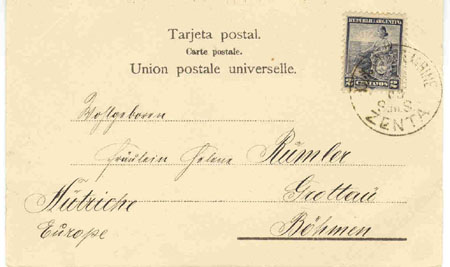 Tarjeta postal.
Carte postale.
Union postale universelle.
REPUBLICA ARGENTINA
2 CENTAVOS 2
ZENTA
Wohlgeboren
Fräulein Helene Rümler
Grottau
Böhmen
Autriche
Europe